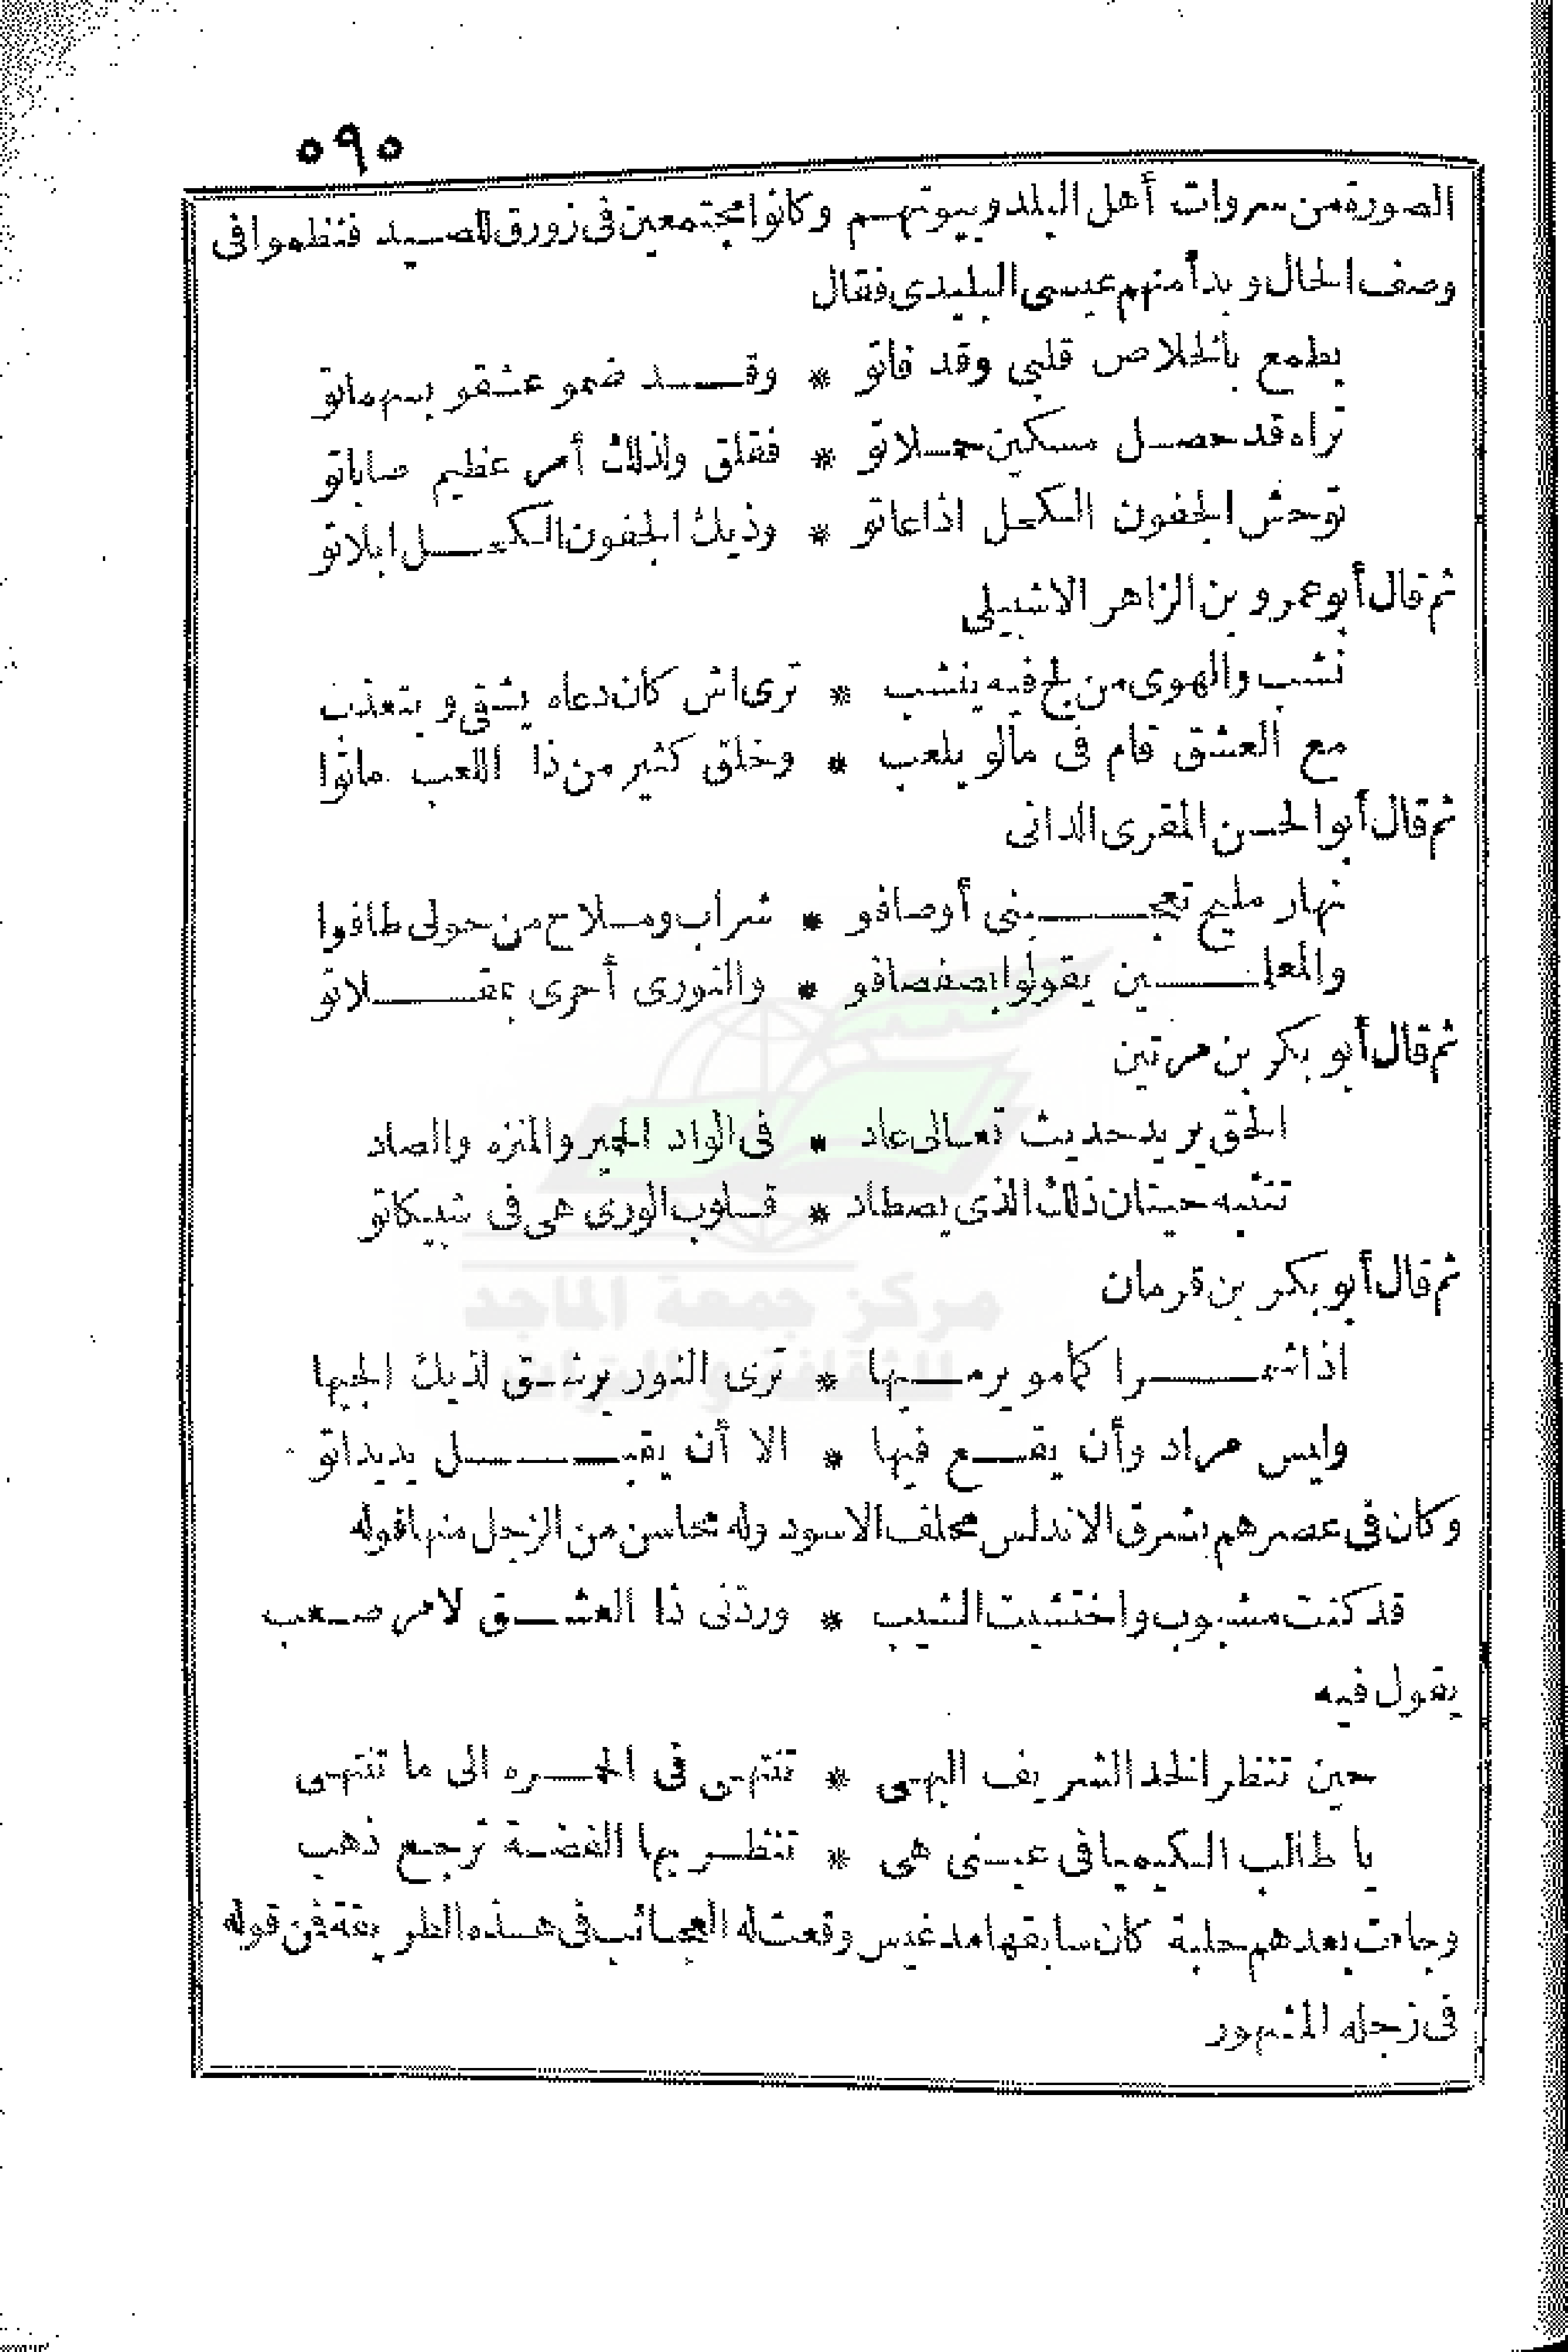 ٥٩٠
الصورة من سروات أهل البلد وبيوتهم وكانوا مجتمعين فى زورق للصيد فنظموا فى
وصف الحال وبدأ منهم عيسى البليدى فقال
يطمع بالخلاص قلبى وقد فاتو * وقد ضمو عشقو بسهماتو
تراه قد حصل مسكين حملاتو * فقلق واذلك أمر عظيم صاباتو
توحش الجفون الكحل اذا عاتو * وذيك الجفون الكحل ابلاتو
ثم قال أبو عمرو بن الزاهر الاشبيلى
نشب والهوى من لج فيه ينشب * ترى اش كان دعاه يشقى ويتعذب
مع العشق قام فى مالو يلعب * وخلق كثير من ذا اللعب ماتوا
ثم قال أبو الحسن المقرى الدانى
نهار مليح تعجبنى أوصافو * شراب وملاح من حولى طافوا
والمعلمين يقولوا بصفصافو * والنورى أحرى بمقلاتو
ثم قال أبو بكر بن مرتين
الحق يريد حديث تعالى عاد * فى الواد الحير والمنزه والصاد
تنتبه حيتان ذلك الذى يصطاد * قلوب الورى هى فى شبيكاتو
ثم قال أبو بكر بن قزمان
اذا شمرا كمامو يرميها * ترى النور يرشق لذيك الجيها
وليس مراد وأن يقع فيها * الا أن يقبل يديداتو
وكان فى عصرهم بشرق الاندلس محلف الاسود وله محاسن من الزجل منها قوله
قد كنت مشبوب واختشيت الشيب * وردنى ذا العشق لامر صعب
يقول فيه
حين تنظر الخد الشريف البهى * تنتهى فى الجره الى ما تنتهى
يا طالب الكيميا فى عينى هى * تنظر بها الفضة ترجع ذهب
وجاءت بعدهم حلبة كان سابقها مدغيس وقعت له العجائب فى هذه الطريقة فمن قوله
فى زجله المشهور
مركز جمعة الماجد
للثقافة والتراث